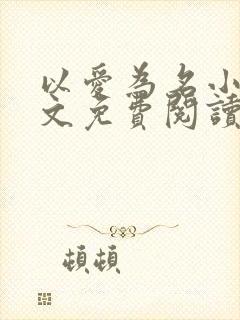 以愛為名小
文免費閱讀
頓頓